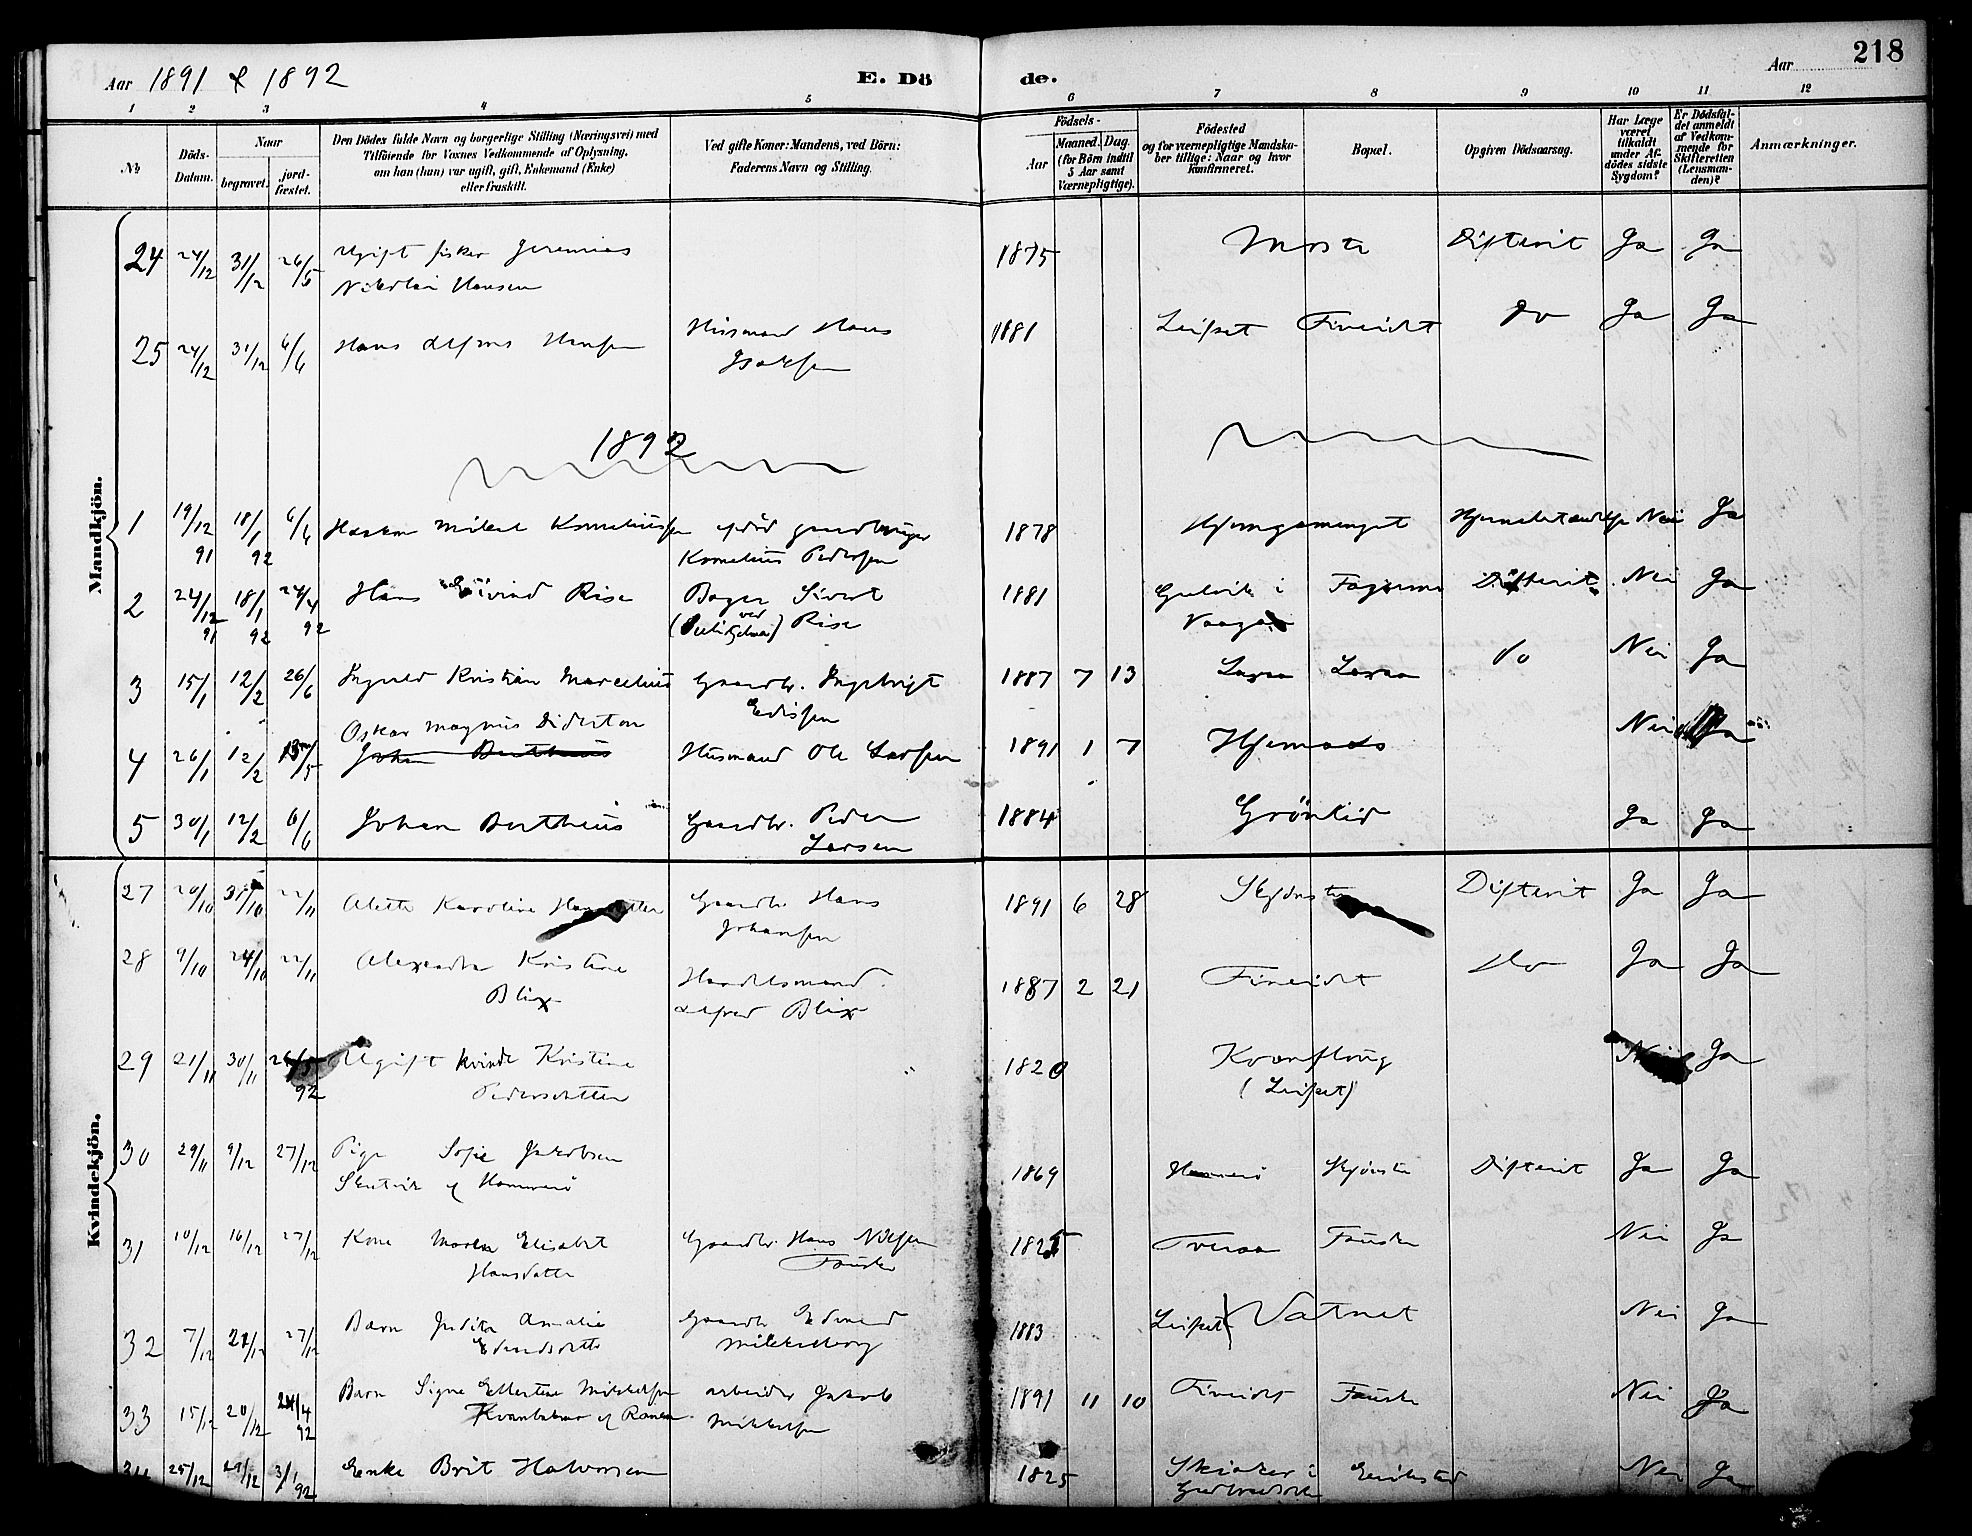 218
Aar 1891 & 1892 E. Dö de. Aar
1 2 3 4 5 6 7 8 9 10 11 12
No
Döds-Datum.
Naar
begravet. jord-fæstet.
Den Dödes fulde Navn og borgerlige Stilling (Næringsvei) med
Tilföiende for Voxnes Vedkommende af Oplysning,
om han (hun) var ugift, gift, Enkemand (Enke)
eller fraskilt.
Ved gifte Koner: Mandens, ved Börn:
Faderens Navn og Stilling.
Födsels-
Aar Maaned. Dag.
(for Börn indtil 5 Aar samt Værnepligtige).
Födested
og for værnepligtige Mandskaber tillige: Naar og hvor konfirmeret.
Bopæl.
Opgiven Dödsaarsag.
Har Læge været tilkaldt under Afdödes sidste Sygdom?
Er Dödsfaldet anmeldt af Vedkommende for Skifteretten (Lensmanden)?
Anmærkninger.
Mandkjön.
24 24/12 31/12 26/5 Ugift fisker Jeremias 1875 Moste Difterit Ja Ja
Nikolai Hansen
25 24/12 31/12 6/6 Hans Alfons Hansen Husmand Hans 1881 Leifset Fineidet do Ja Ja
Isaksen
1892
1 19/12 91 18/1 92 6/6 Haakon Mikal Korneliussen afdöd gaardbruger 1878 Hjemgammen Nei Ja
Kornelius Pedersen
2 24/12 91 18/1 92 24/4 92 Hans Eivind Rise Bager Sivert 1881 Gulvik i Difterit Nei Ja
Rise Vaagan
3 15/1 12/2 26/6 Kristian Marcelius Gaardbr. Ingebrigt 1887 7 13 do Nei Ja
4 26/1 12/2 Oskar Magnus Husmand Ole Larsen 1891 1 7 Hjemaas Nei Ja
Johan Berthius
5 30/1 12/2 6/6 Johan Berthius Gaardbr. Peder 1884 Grönlid Ja Ja
Larsen
Kvindekjön.
27 20/10 31/10 22/11 Alette Karoline Hansdatter Gaardbr Hans 1891 6 28 Skjönsta Difterit Ja Ja
Johansen
28 9/10 24/10 22/11 Alexandra Kristine Handelsmand 1887 2 21 Fineidet do Ja Ja
Blix Alfred Blix
29 21/11 30/11 26/5 92 Ugift kvinde Kristine 1820 Kvænflaug Nei Ja
Pedersdatter (Leifset)
30 29/11 9/12 27/12 Pige Sofie Jakobsen 1869 Hammerö Skjönsta Difterit Ja Ja
Skutvik af Hammerö
31 10/12 16/12 27/12 Kone Maren Elisabet Gaardbr. Hans Nilsen 1825 Tveraa Fauske Nei Ja
Hansdatter Fauske
32 7/12 21/12 27/12 Barn Judith Amalie Gaardbr Edvard 1883 Leifset Vatnet Nei Ja
Edvardsdatter
33 15/12 20/12 24/4 92 Barn Signe Ellertine Mikkelsen arbeider Jakob 1891 11 10 Fineidet Fauske Nei Ja
af Ranen Mikkelsen
34 25/12 29/12 3/1 92 Enke Brit Halvorsen 1825 Skiaker i Nei Ja
Gudbrandsdalen